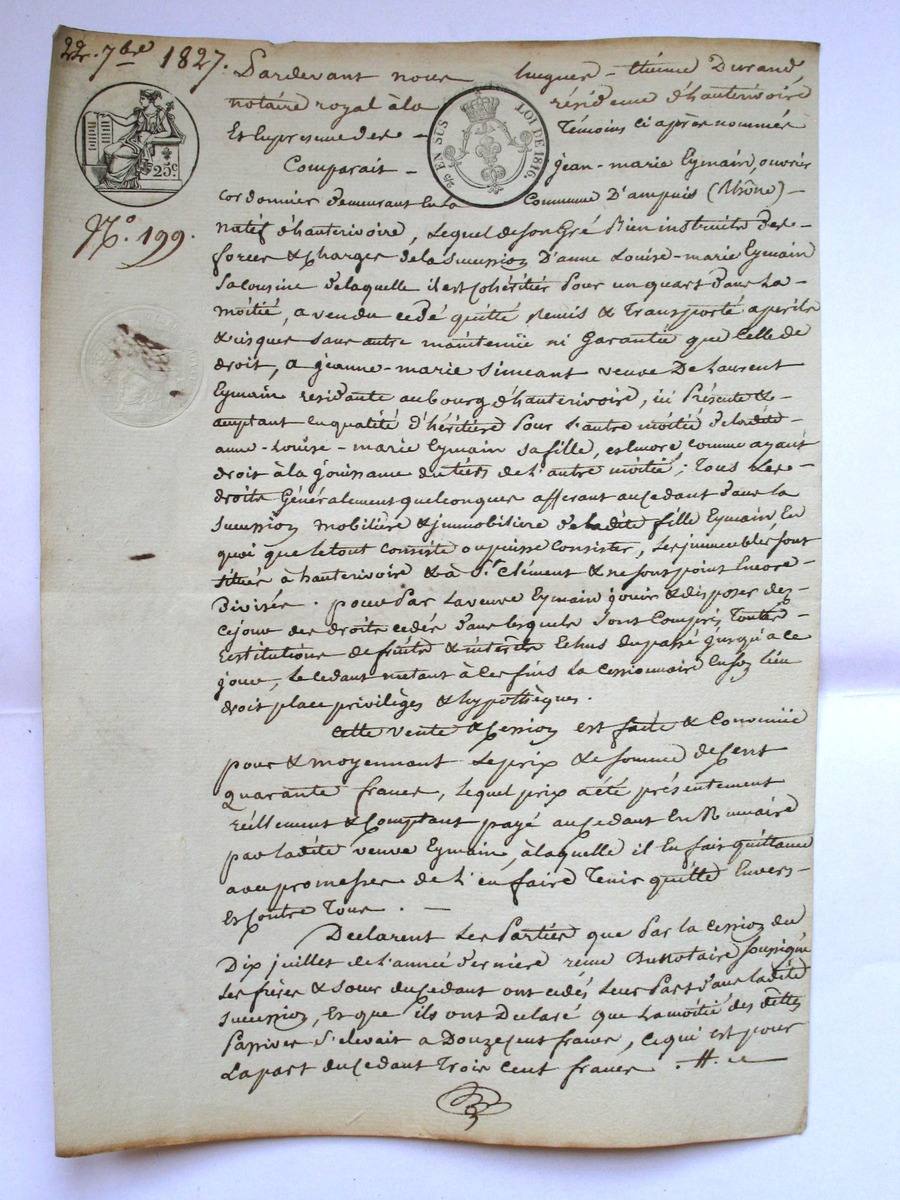 22. 7bre 1827.
Pardevant nous hugues-étienne Durand,
notaire royal à la résidence d'hauterivoire
Et En présence des témoins ci après nommés
25c
EN SUS LOI DE 1816.
Comparait - jean-marie Eymain, ouvrier
cordonnier demeurant En la Commune D'ampuis (Rhône) -
No. 199.
natif d'hauterivoire, Lequel de son Gré Bien instruit des
forces & Charges de la succession D'anne Louise-marie Eymain
sa cousine de laquelle il est cohéritier Pour un quart dans La
moitié, a vendu cédé quitté Remis & Transporté a perils
& risques sans autre maintenüe ni Garantie que Celle de
droit, a jeanne-marie Simeant veuve De Laurent
Eymain residante au bourg d'hauterivoire, ici Présente &
acceptant En qualité d'héritière Pour l'autre moitié de ladite
anne-Louise-marie Eymain sa fille, & Encore comme ayant
droit à la jouissance du tiers de l'autre moitié; Tous Les
droits Généralement quelconques afferant au cedant dans la
succession mobilière & jmmobilière de ladite fille Eymain, En
quoi que le tout consiste ou puisse consister, Les jmmeubles sont
situés à hauterivoire & à St. Clément & ne sont point Encore
Divisés. pour Par La veuve Eymain jouir & disposer dez
ce jour des droits cédés dans lesquels sont Compris toutes
restitutions de fruits & intérêts Echus du passé jusqu'a ce
jour, le cedant metant à ces fins La cessionnaire En son lieu
droit place privilèges & hypothèques.
Cette vente & Cession est faite & Convenüe
pour & moyennant Le prix & somme de Cent
quarante francs, lequel prix a été présentement
réellement & Comptant payé au cedant En Numéraire
par ladite veuve Eymain, à laquelle il En fait quittance
avec promesse de l'en faire Tenir quitte Envers
Et Contre Tous. -
Declarent Les Parties que Par la cession du
Dix juillet de l'année derniere reçue Du Notaire soussigné
Les frères & sœur du cedant ont cédés Leur Part dans ladite
succession, Et que ils ont Declaré que La moitié des dettes
Passives s'elevait a Douze cent francs, ce qui est pour
La part du cedant Trois cent francs.